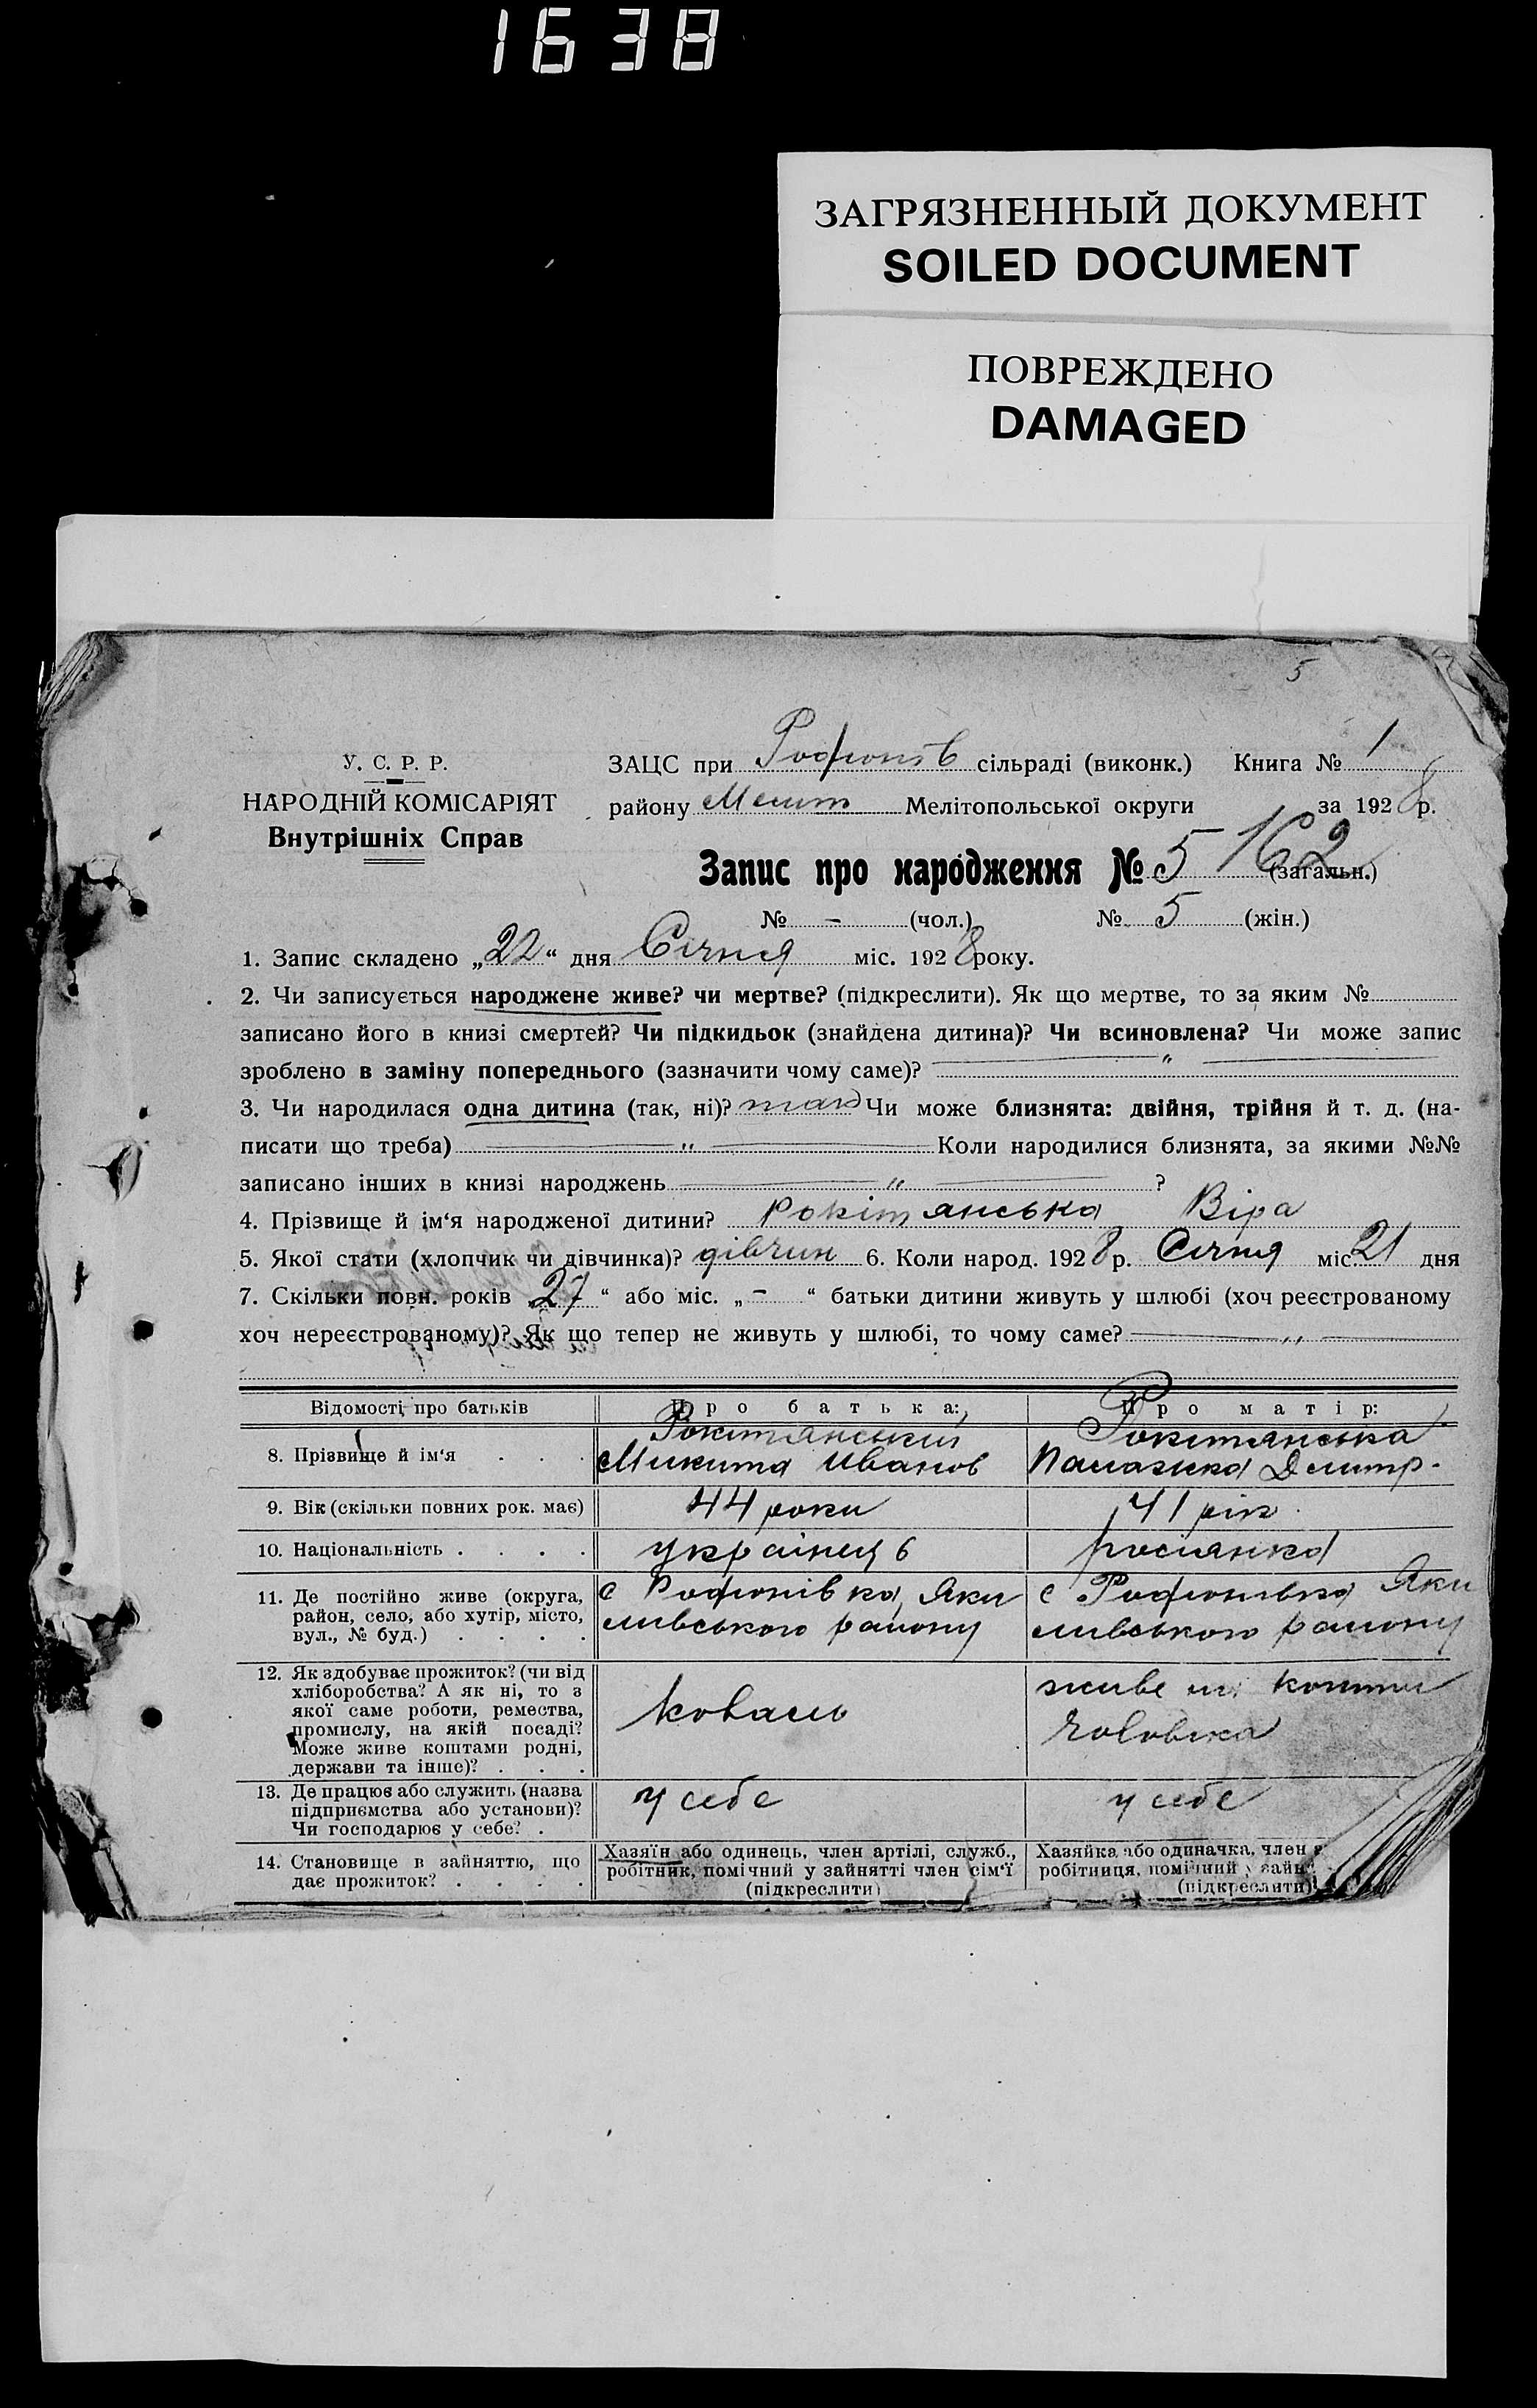 1638
ЗАГРЯЗНЕННЫЙ ДОКУМЕНТ
SOILED DOCUMENT
ПОВРЕЖДЕНО
DAMAGED
5
У. С. Р. Р.
НАРОДНІЙ КОМІСАРІЯТ
Внутрішніх Справ
ЗАЦС при Родионів сільраді (виконк.) Книга № 1
району Мелит Мелітопольської округи за 1928 р.
Запис про народження № 5 162 (загальн.)
№ - (чол.) № 5 (жін.)
1. Запис складено „22“ дня Січня міс. 1928 року.
2. Чи записується народжене живе? чи мертве? (підкреслити). Як що мертве, то за яким №
записано його в книзі смертей? Чи підкидьок (знайдена дитина)? Чи всиновлена? Чи може запис
зроблено в заміну попереднього (зазначити чому саме)? — „ —
3. Чи народилася одна дитина (так, ні)? так Чи може близнята: двійня, трійня й т. д. (на-
писати що треба) — „ — Коли народилися близнята, за якими №№
записано інших в книзі народжень — „ — ?
4. Прізвище й ім‘я народженої дитини? Рокітянська Віра
5. Якої стати (хлопчик чи дівчинка)? дівчин 6. Коли народ. 1928 р. Січня міс. 21 дня
7. Скільки повн. років „27“ або міс. „-“ батьки дитини живуть у шлюбі (хоч реєстрованому
хоч нереєстрованому)? Як що тепер не живуть у шлюбі, то чому саме? — „ —
Відомості про батьків Про батька: Про матір:
8. Прізвище й ім‘я . . . Рокитянський Рокитянська
Микита Иванов Палажка Дмитр.
9. Вік (скільки повних рок. має) 44 роки 41 рік
10. Національність . . . . українець росіянка
11. Де постійно живе (округа, с Родионівка Яки с Родионівка Яки
район, село, або хутір, місто, мивського району мивського району
вул., № буд.) . . . .
12. Як здобуває прожиток? (чи від
хліборобства? А як ні, то з живе на кошти
якої саме роботи, ремества, коваль чоловіка
промислу, на якій посаді?
Може живе коштами родні,
держави та інше)? . . .
13. Де працює або служить (назва у себе у себе
підприємства або установи)?
Чи господарює у себе? .
14. Становище в зайняттю, що
дає прожиток? . . . .
Хазяїн або одинець, член артілі, служб.,
робітник, помічний у зайнятті член сім‘ї
(підкреслити)
Хазяйка або одиначка, член
робітниця, помічний у зайн
(підкреслити)